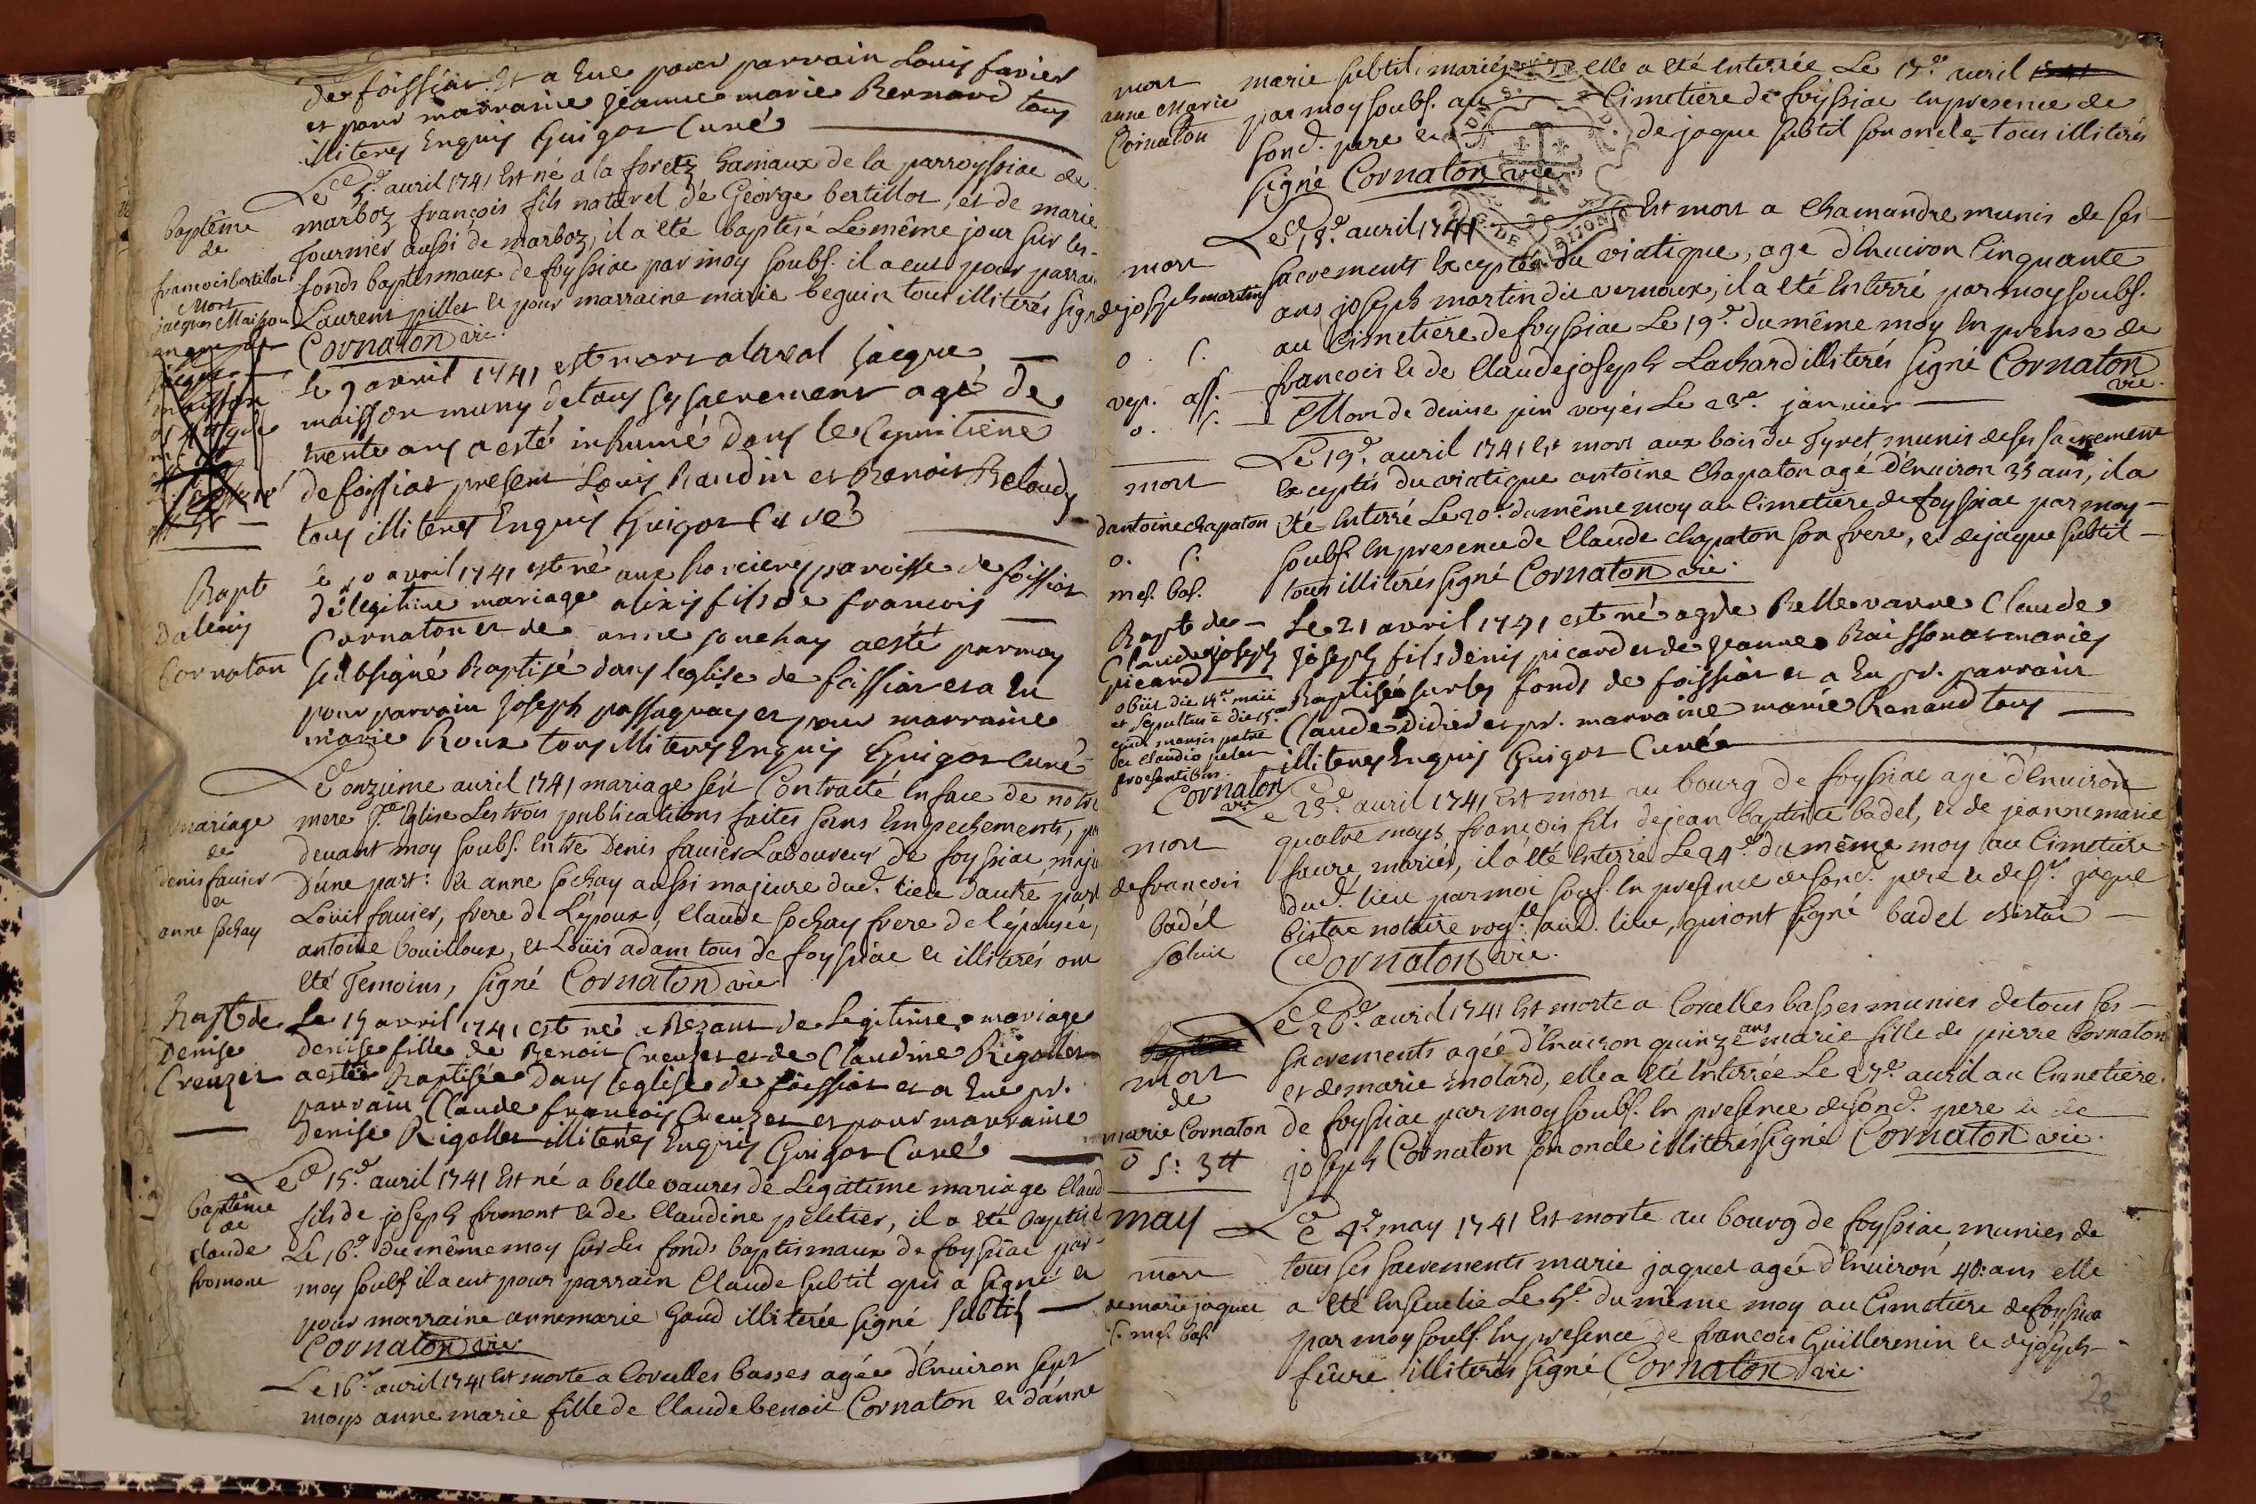 de foissiat. Et a Eue pour parrain Louis favier
et pour marraine jeanne marie Bernard tous
illiteres Enquis Guigot Curé
baptême
de
francois bertillot
Le 5e. avril 1741 Est né a la foretz hamaux de la parroyssiae de
marboz françois fils naturel de George bertillot, et de marie
Fournier aussi de marboz, il a eté baptisé Le même jour sur les
fonds baptismaux de foyssiac par moy soubs. il a eut pour parrain
Laurent pillet & pour marraine marie beguin tous illiterés signé
Cornaton vic.
Mort
jacques Maisson
Le 9 avril 1741 est mort alaval jacque
maisson muny de tous ses sacrement agé de
trente ans a esté inhumé dans le Cymitiere
de foissiat present Louis Raudin et Benoit Beloudy
tous illiteres Enquis Guigot Curé
Bapt
Dalexis
Cornaton
Le 10 avril 1741 est né aux sorciery paroisse de foissiat
de legitime mariage alexis fils de francois
Cornaton et de anne sonchay a esté par moy
soubsigné Baptisé dans leglise de foissiat et a Eu
pour parrain Joseph passaquay et pour marraine
marie Roux tous illiteres Enquis Guigot Curé
mariage
de
denis favier
et
anne sochay
Le onzieme avril 1741 mariage fut Contracté En face de notre
mere ste Eglise Les trois publications faites sans Empechements, par
devant moy soubs. Entre Denis favier Laboureur de foyssiac, majeur
D'une part: & anne sochay aussi majeure dud. lieu d'autre part
Loüis favier, frere de L'époux, Claude sochay frere de l'épousée,
antoine bouilloux, et Loüis adam tous de foyssiac & illiterés ont
Eté Temoins, signé Cornaton vic
Bapt de
Denise
Creuzet
Le 15 avril 1741 est né a Bezant de Legitime mariage
denise fille de Benoit Creuzet et de Claudine Rigollet
a estée Baptisée dans leglise de foissiat et a Eue pr.
parrain Claude francois Creuzet et pour marraine
denise Rigollet illiterés Enquis Guigot Curé
baptême
de
claude
fromont
Le 15e. avril 1741 Est né a belle vavres de Legitime mariage Claude
fils de joseph fromont & de Claudine peletier, il a eté baptisé
Le 16e. du même moy sur Les fonds baptismaux de foyssiac par
moy soubs. il a eut pour parrain Claude subtil qui a signé &
pour marraine anne marie Gaud illiterée signé Subtil
Cornaton vic
Le 16e. avril 1741 Est morte a Corcelles basses agée d'Environ sept
moys anne marie fille de Claude benoit Cornaton & d'anne
mort
anne Marie
Cornaton
marie subtil, mariés elle a eté Enterrée Le 17e. avril
par moy soubs. au Cimetiere de foyssiac En presence de
sond. pere & de jaque subtil son oncle tous illiterés
signé Cornaton vic
mort
de joseph martin
o. C.
Le 18e. avril 1741 Est mort a Chamandre munis de ses
sacrements Exceptés du viatique, age d'Environ Cinquante
ans joseph martin dit vernoux, il a eté Enterré par moy soubs.
au Cimetiere de foyssiac Le 19e. du même moy En presense de
francois & de Claude joseph Lachard illiterés signé Cornaton
vic.
vep. ass.
o. C.
Mort de denise pin voyés Le 23e. janvier
mort
dantoine chapaton
o. C.
mes. bas.
Le 19e. avril 1741 Est mort aux bois du Tyret munis de ses sacrement
Exceptés du viatique antoine Chapaton agé d'Environ 35 ans, il a
eté Enterré Le 20e. du même moy au Cimetiere de foyssiac par moy
soubs. En presence de Claude chapaton son frere, & de jaque subtil
tous illiterés signé Cornaton vic.
Bapt de
Claude joseph
picard
obiit die 14e. maii
et sepultus e die 15e.
ejusd. mensis patre
et claudio
proesentibus.
Cornaton
vic
Le 21 avril 1741 est né a gde Bellevavre Claude
Joseph fils denis picard et de jeanne Raissonat mariés
Baptisé sur les fonds de foissiat et a Eu pr. parrain
Claude Didier et pr. marraine marie Renaud tous
illiteres Enquis Guigot Curé
mort
de francois
badél
solvit
Le 23e. avril 1741 Est mort au bourg de foyssiac age d'Environ
quatre moys françois fils de jean baptiste badel, & de jeanne marie
faure mariés, il a eté Enterré Le 24e. du même moy au Cimetiere
dud. lieu par moi soubs. En presence de sond. pere & de sr. jaque
bistac notaire roy. aud. lieu, qui ont signé badel bistac
Cornaton vic.
mort
de
marie Cornaton
o S: 3tt
Le 26e. avril 1741 Est morte a Corcelles basses munies de tous ses
sacrements agée d'Environ quinze ans marie fille de pierre Cornaton
et de marie Molard, elle a eté Enterrée Le 27e. avril au Cimetiere
de foyssiac par moy soubs. En presence de sond. pere & de
joseph Cornaton son oncle illiterés signé Cornaton vic.
may
mort
de marie jaquet
C. mes. bas.
Le 4e. may 1741 Est morte au bourg de foyssiac munies de
tous ses sacrements marie jaquet agée d'Environ 40: ans elle
a eté Ensevelie Le 5e. du même moy au Cimetiere de foyssiac
par moy soubs. En presence de francois Guillermin & de joseph
fiûre illiterés signé Cornaton vic.
22